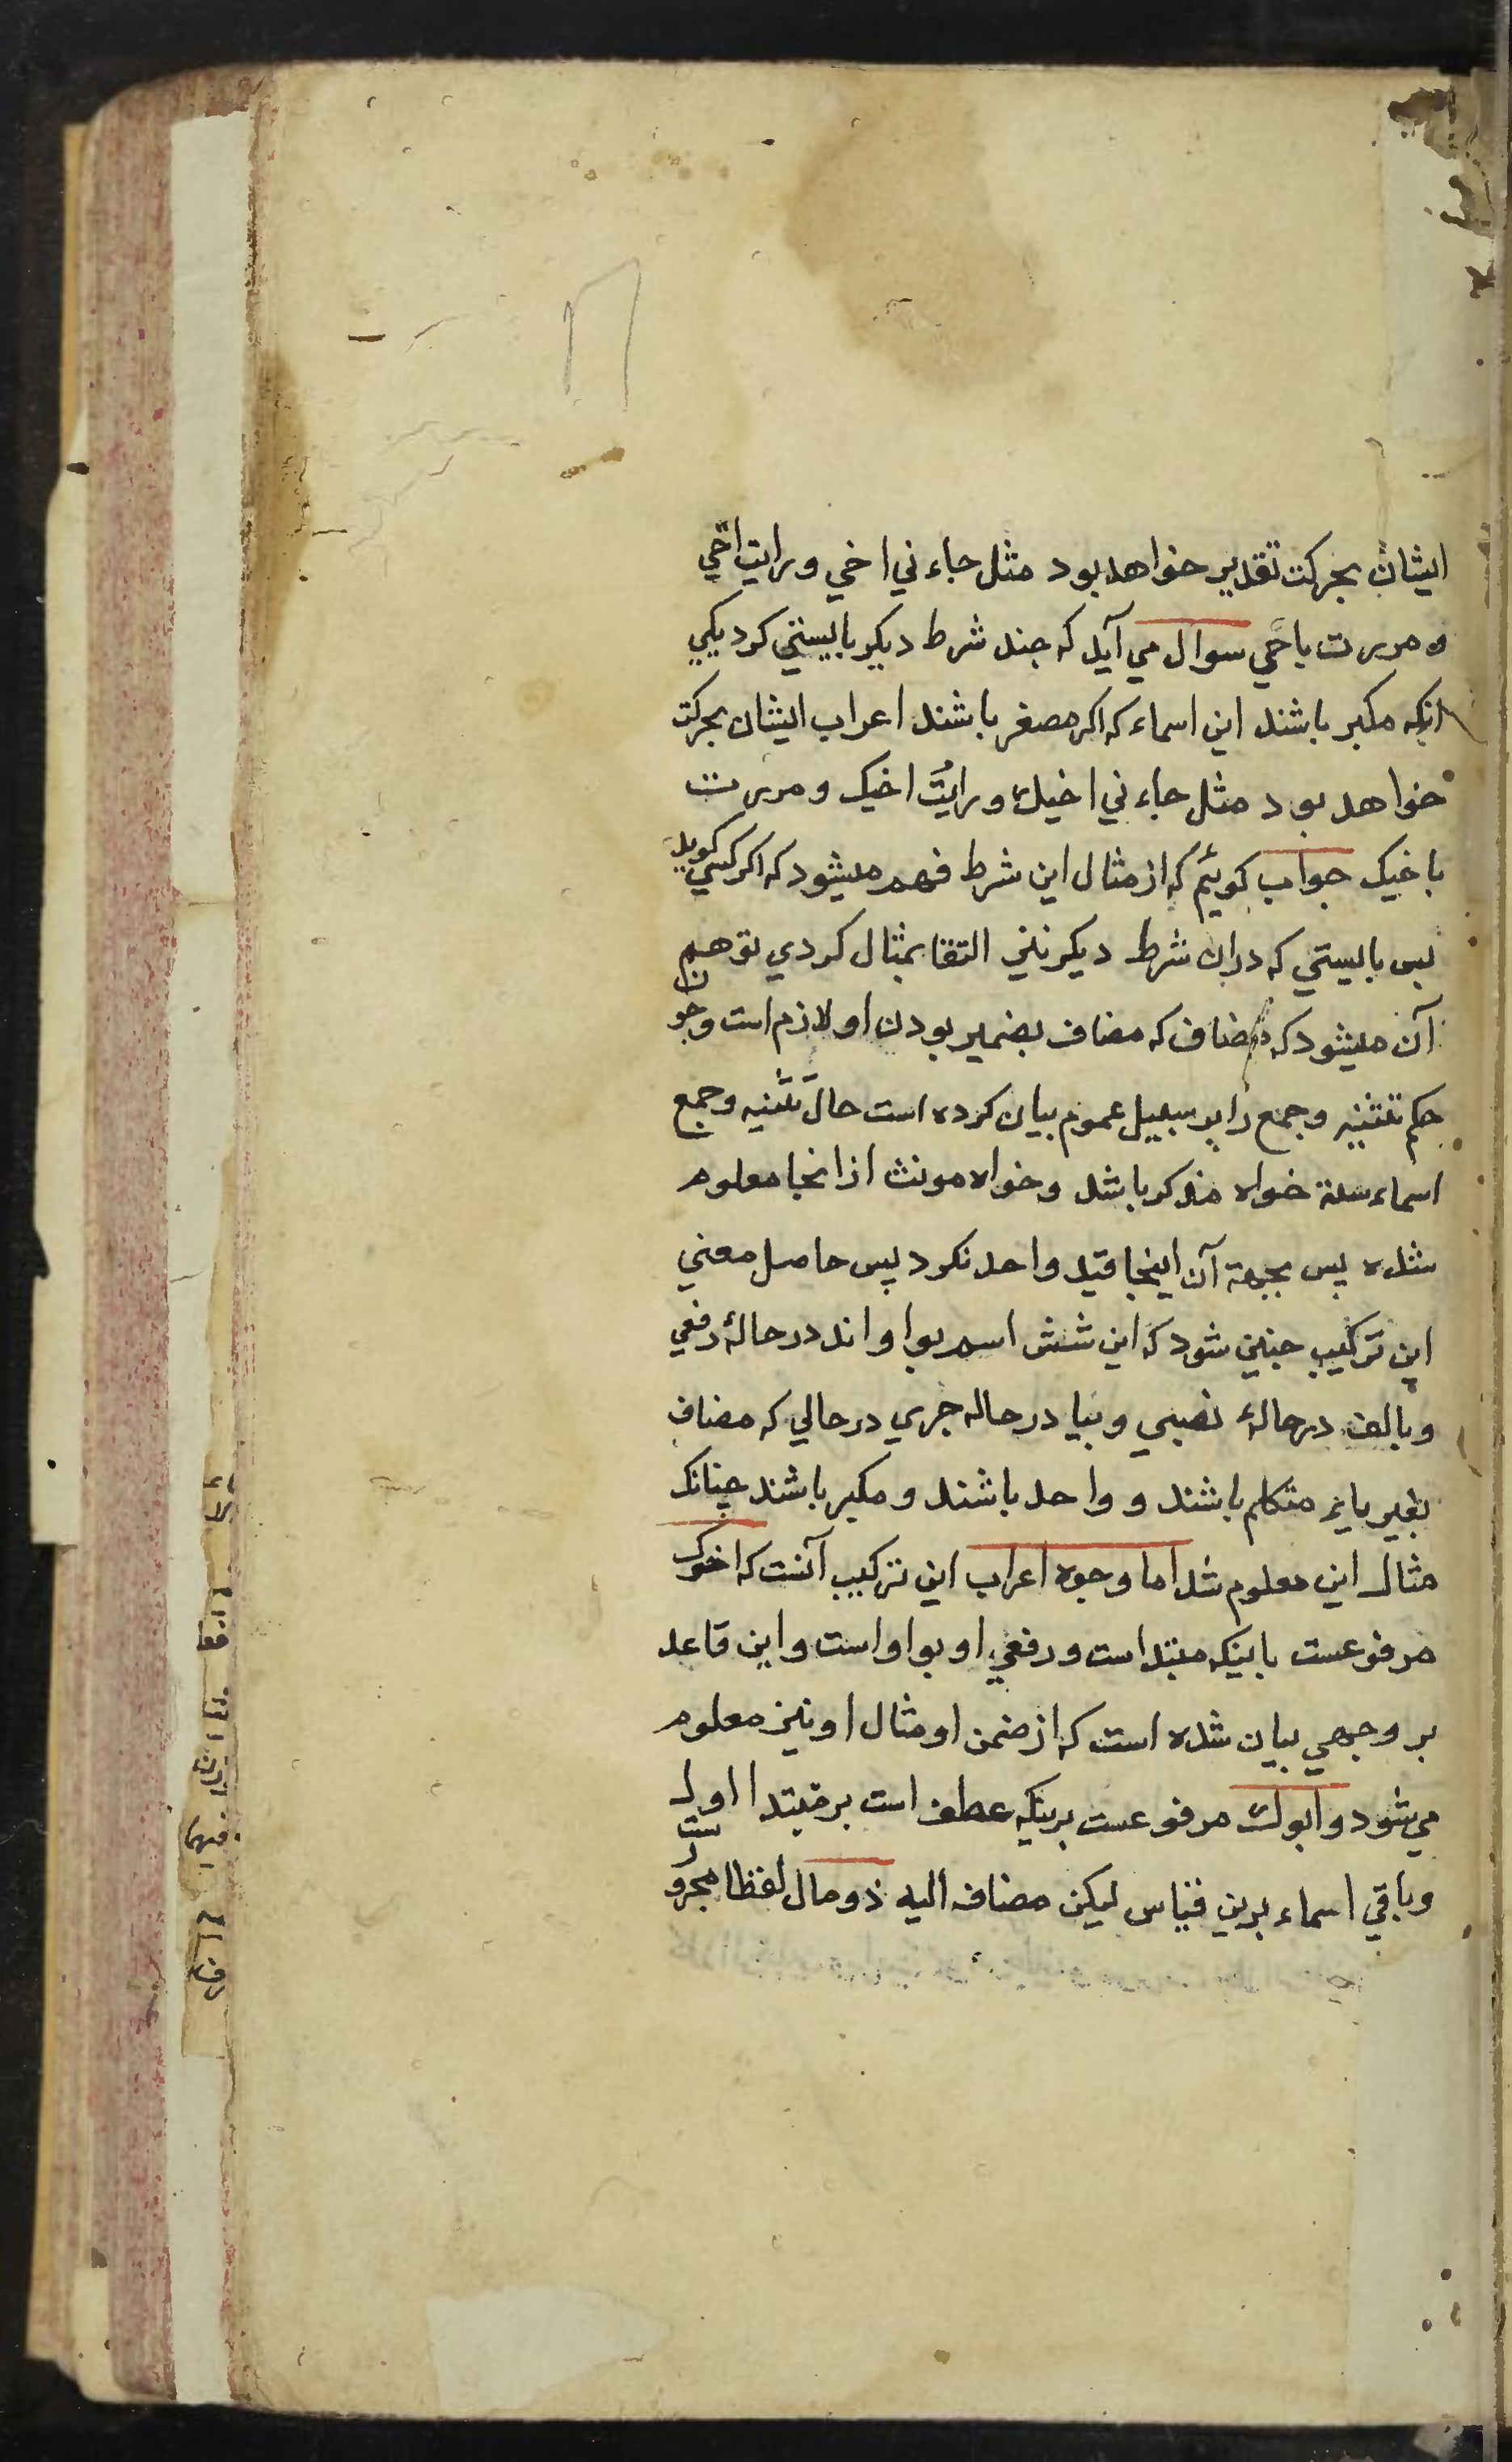 ایشان بحرکت تقدیر خواهد بود مثل جاءني اخي ورایت اخي
ومررت باخي سوال مي آید که چند شرط دیکر بایستي کرد یکي
انکه مکبر باشند این اسماء که اکر مصغر باشند اعراب ایشان بحرکت
خواهد بود مثل جاءني اخیك ورایت اخیك ومررت
باخیك جواب کوئیم که از مثال این شرط فهم میشود که اکر کسي کوید
پس بایستي که دران شرط دیکر نیز التفا بمثال کردي توهم
آن میشود که مضاف که مضاف بضمیر بودن او لازم است وچون
حکم تثنیه وجمع را بر سبیل عموم بیان کرده است حال تثنیه وجمع
اسماء ستة خواه مذکر باشد وخواه مونث ازانجا معلوم
شده پس بجهة آن اینجا قید واحد نکرد پس حاصل معني
این ترکیب چنین شود که این شش اسم بواو اند در حالۀ رفعي
وبالف در حالۀ نصبي وبیا در حاله جري در حالي که مضاف
بغیر یاء متکلم باشند و واحد باشند ومکبر باشند چنانک
مثال این معلوم شد اما وجوه اعراب این ترکیب آنست که اخوک
مرفوعست باینکه مبتداست ورفعي او بواواست واین قاعد
بر وجهي بیان شده است که از ضمن او مثال او نیز معلوم
مي شود وابوك مرفوعست برینکه عطف است بر مبتدا اول
وباقي اسماء برین قیاس لیکن مضاف الیه ذو مال لفظا مجرورست